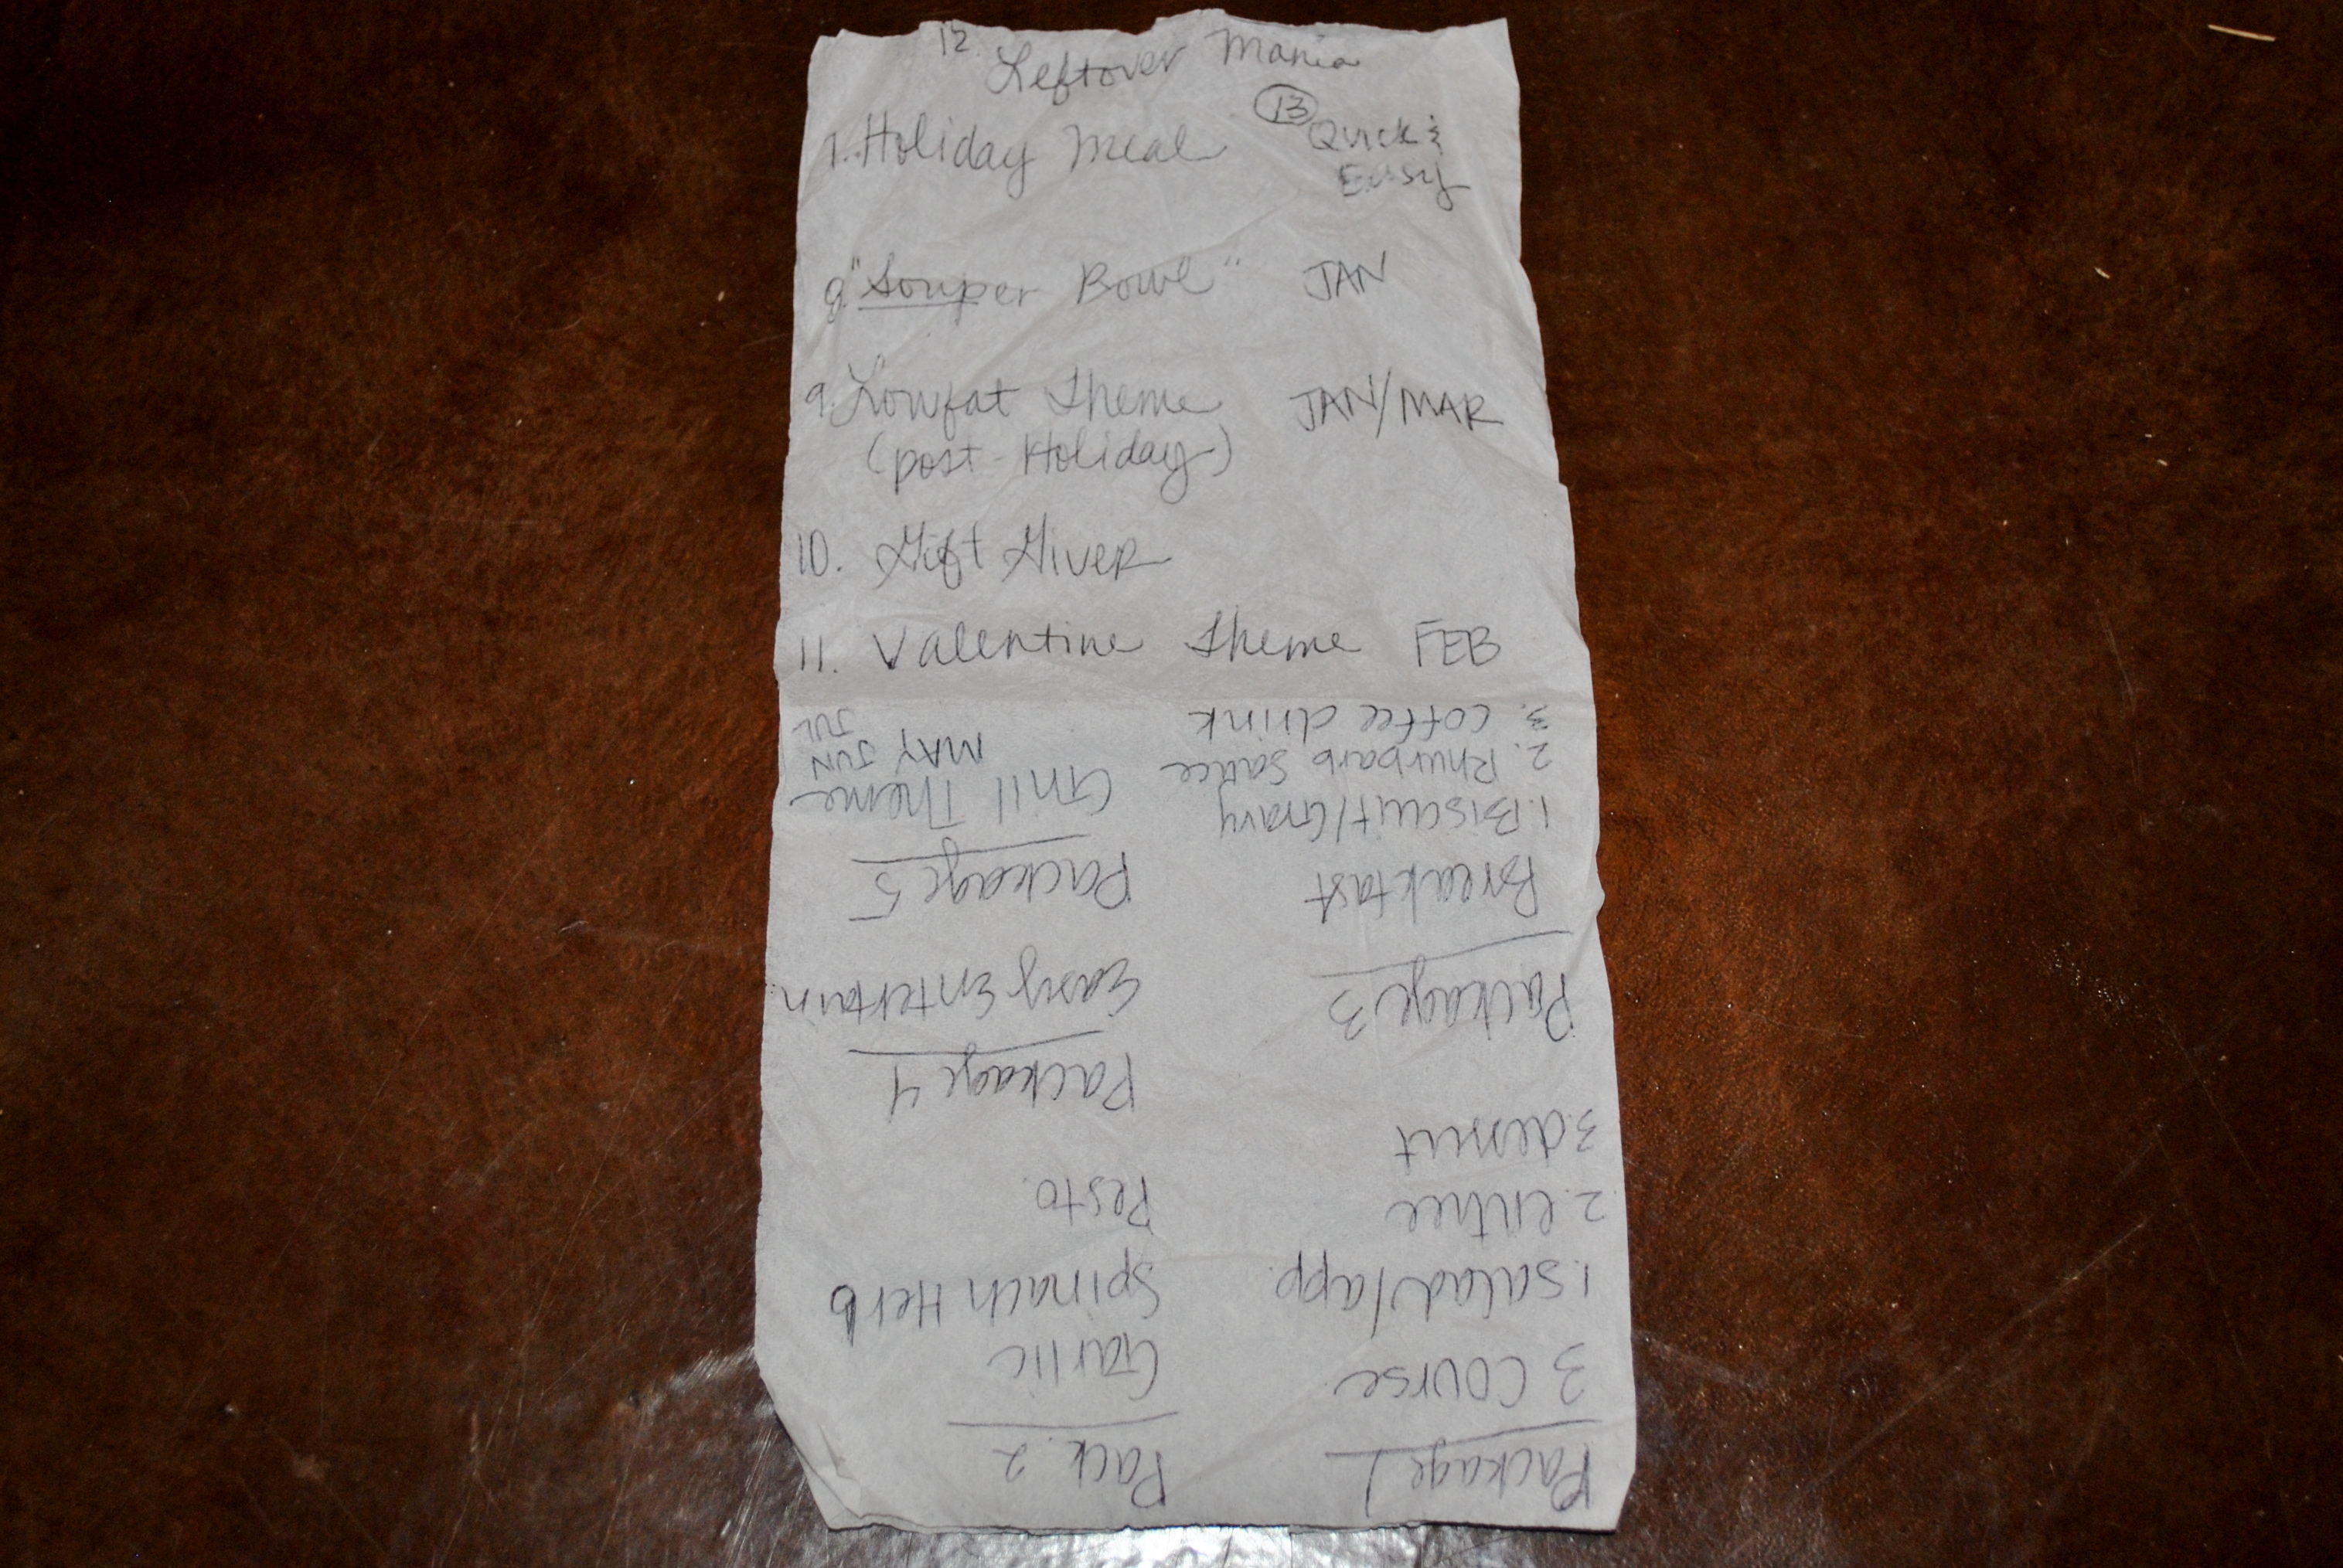 12. Leftover Mania
13 Quick &
Easy
7. Holiday Meal
8. "Souper Bowl" JAN
9. Lowfat Theme JAN/MAR
(post-Holiday)
10. Gift Giver
11. Valentine Theme FEB
Package 1
3 course
1. salad/app.
2. entree
3. dessert
Pack. 2
Garlic
Spinach Herb
Pesto.
Package 3
Breakfast
1. Biscuit/Gravy
2. Rhurbarb Sauce
3. coffee drink
Package 4
Easy Entertain.
Package 5
Grill Theme
MAY JUN
JUN
JUL